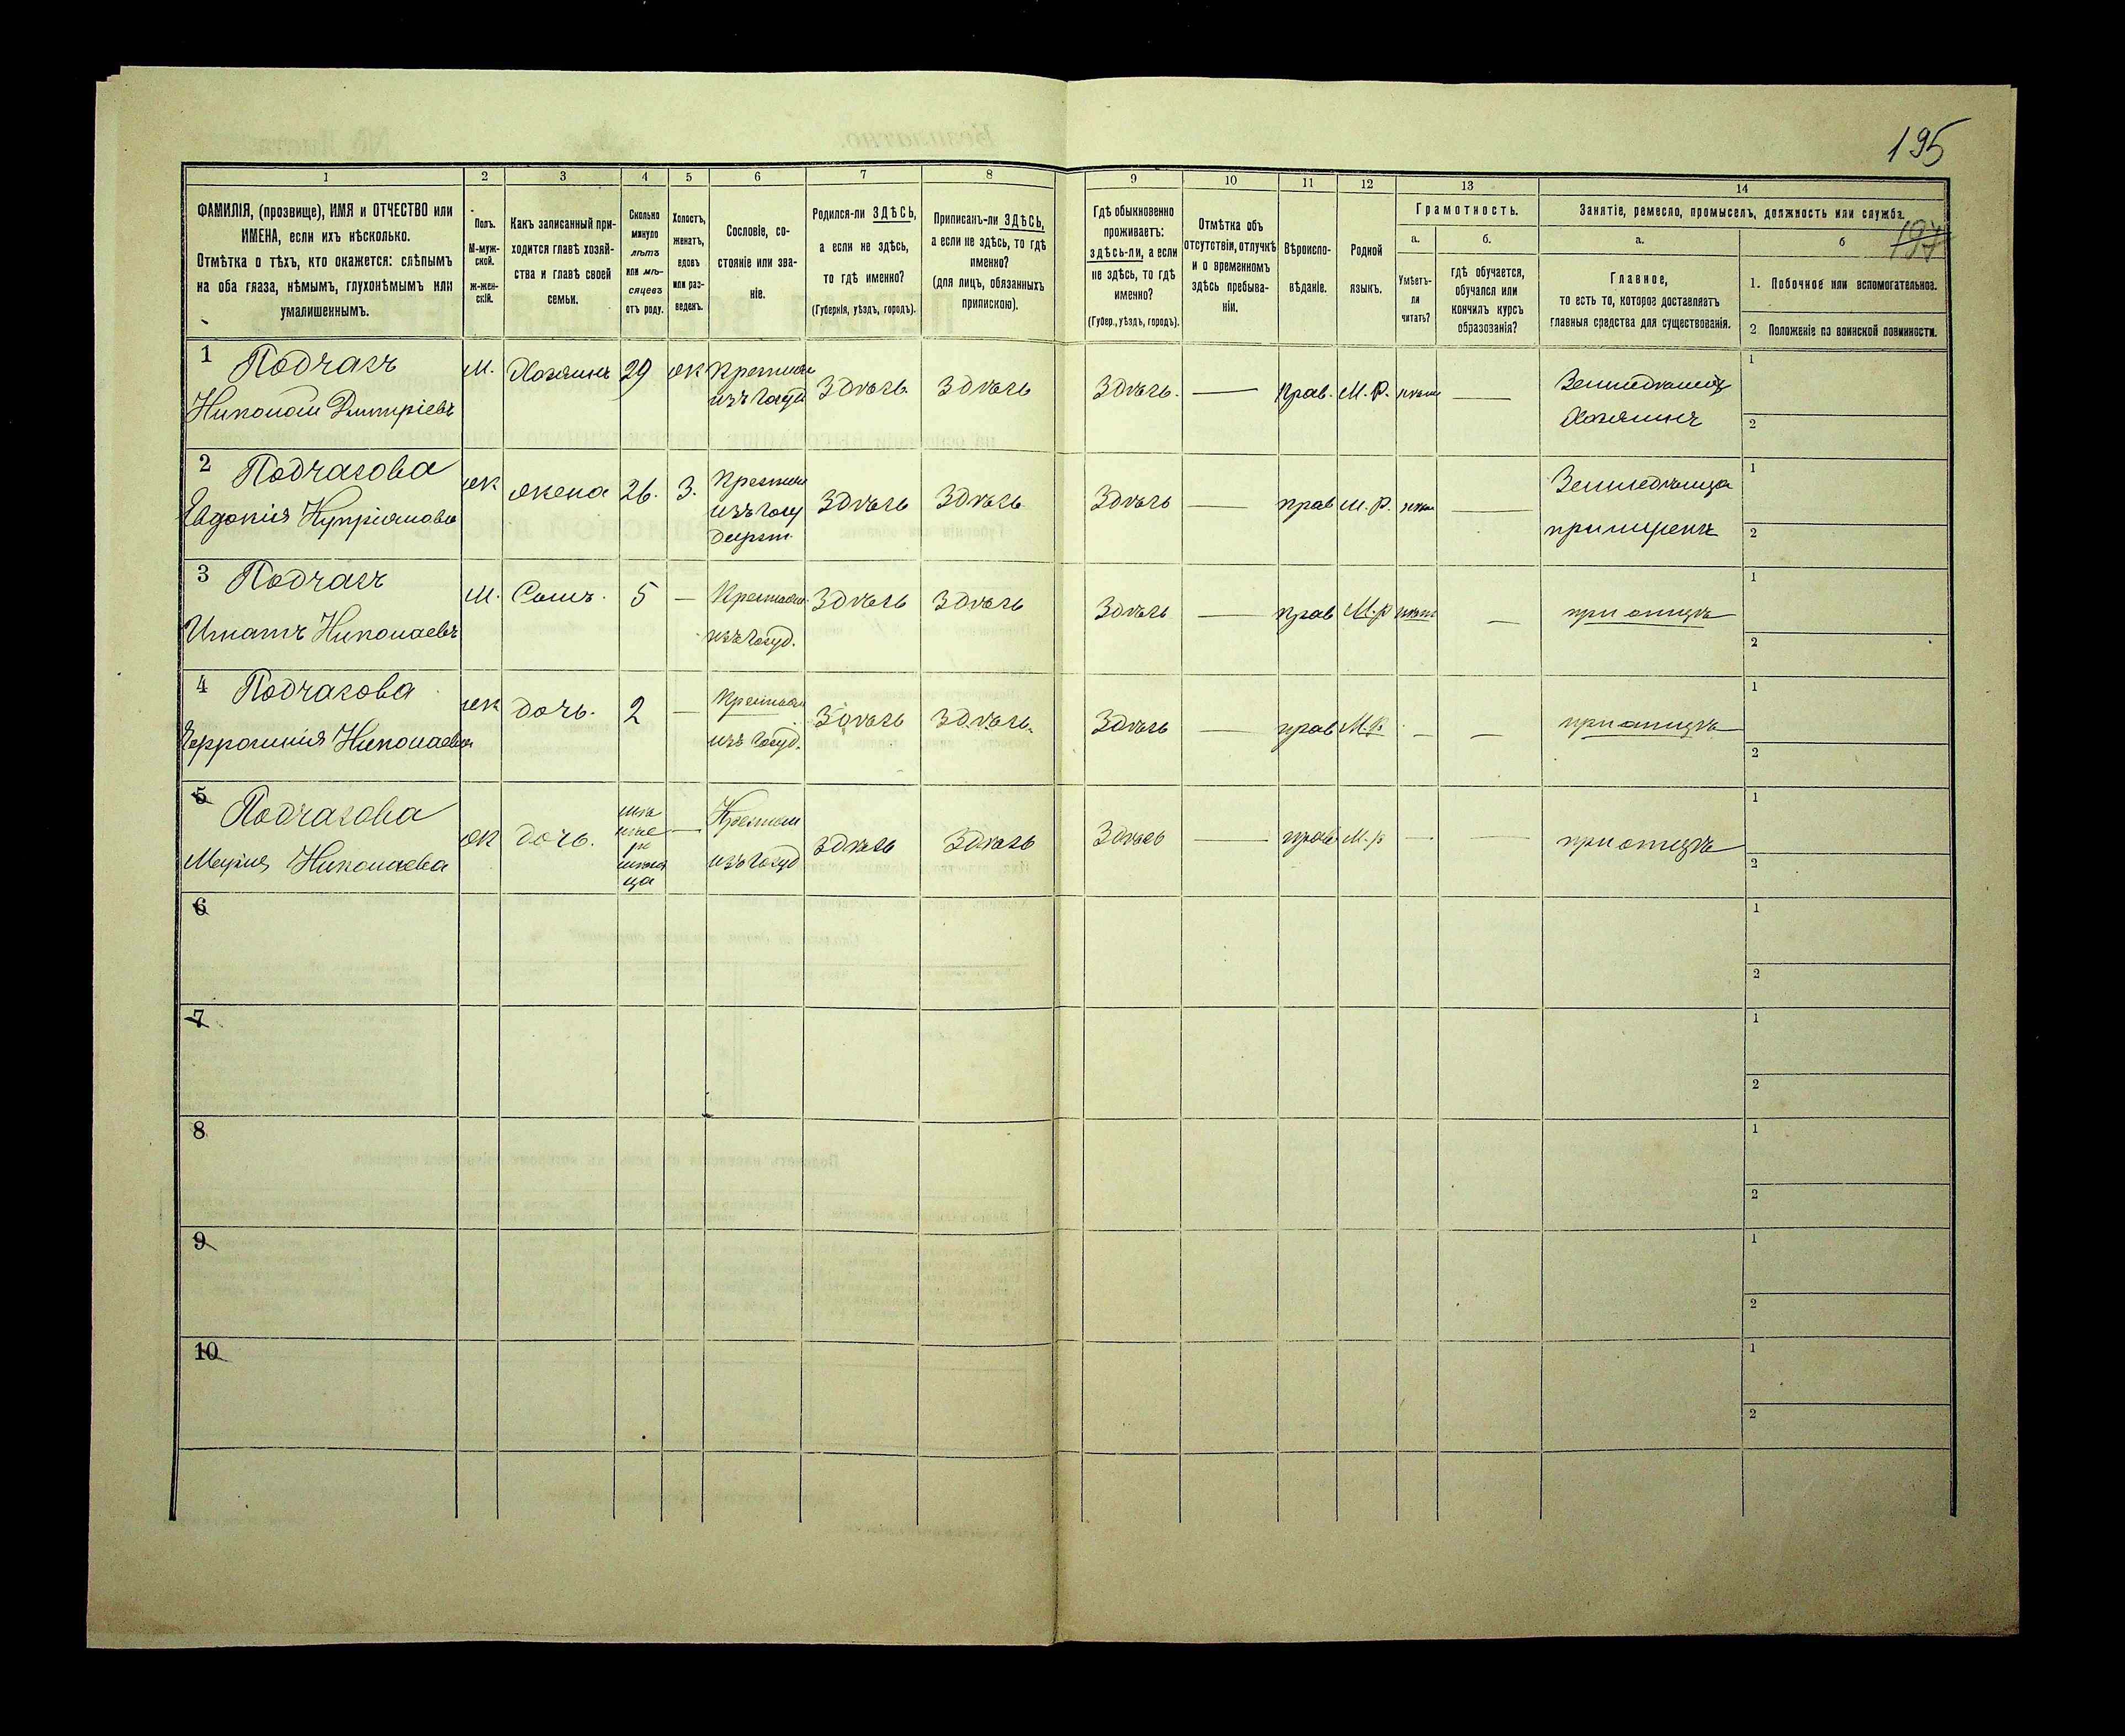 195
197
1 2 3 4 5 6 7 8 9 10 11 12 13 14
ФАМИЛІЯ, (прозвище), ИМЯ и ОТЧЕСТВО или
ИМЕНА, если ихъ нѣсколько.
Отмѣтка о тѣхъ, кто окажется: слѣпымъ
на оба глаза, нѣмымъ, глухонѣмымъ или
умалишеннымъ.
Полъ.
М-муж-
ской.
ж-жен-
скій.
Какъ записанный при-
ходится главѣ хозяй-
ства и главѣ своей
семьи.
Сколько
минуло
лѣтъ
или мѣ-
сяцевъ
отъ роду.
Холостъ,
женатъ,
вдовъ
или раз-
веденъ.
Сословіе, со-
стояніе или зва-
ніе.
Родился-ли ЗДѢСЬ,
а если не здѣсь,
то гдѣ именно?
(Губернія, уѣздъ, городъ).
Приписанъ-ли ЗДѢСЬ,
а если не здѣсь, то гдѣ
именно?
(для лицъ, обязанныхъ
припискою).
Гдѣ обыкновенно
проживаетъ:
здѣсь-ли, а если
не здѣсь, то гдѣ
именно?
(Губер., уѣздъ, городъ).
Отмѣтка объ
отсутствіи, отлучкѣ
и о временномъ
здѣсь пребыва-
ніи.
Вѣроиспо-
вѣданіе.
Родной
языкъ.
Грамотность.
а.
Умѣетъ-
ли
читать?
б.
гдѣ обучается,
обучался или
кончилъ курсъ
образованія?
Занятіе, ремесло, промыселъ, должность или служба.
а.
Главное,
то есть то, которое доставляетъ
главныя средства для существованія.
б
1. Побочное или вспомогательное.
2 Положеніе по воинской повинности.
1 Подчасъ
Николай Дмитріевъ
м. Хозяинъ 29 ж Крестьян
изъ госуд
Здѣсь. Здѣсь Здѣсь. — прав. М.Р. нѣт —
Земледѣлец
Хозяинъ
1
2
2 Подчасова
Евдокія Купріянова
ж жена 26. З. Крестьян
изъ госу
дарст.
Здѣсь Здѣсь Здѣсь — прав М.Р. нѣт —
Земледѣлица
1
2
3 Подчасъ
Игнатъ Николаевъ
М. Сынъ. 5 — Крестьян.
изъ госуд.
Здѣсь Здѣсь Здѣсь — прав М.р нѣт —
при отцѣ
1
2
4 Подчасова
Николаева
ж дочь. 2 — Крестьян
изъ госуд.
Здѣсь Здѣсь. Здѣсь — прав М.р. — —
при отцѣ
1
2
5 Подчасова
Марія Николаева
ж дочь. — Крестьян
изъ госуд
Здѣсь Здѣсь Здѣсь — прав М.р — —
при отцѣ
1
2
6
1
2
7
1
2
8
1
2
9
1
2
10
1
2